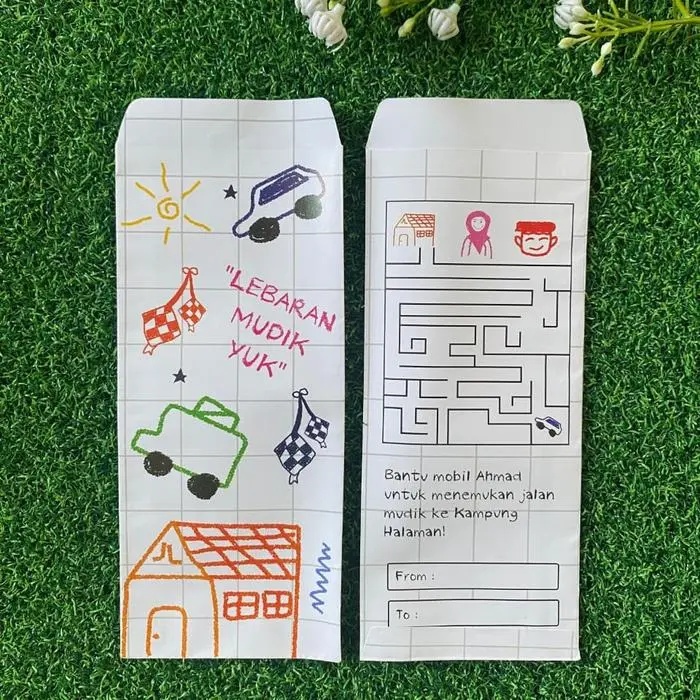 "LEBARAN
MUDIK
YUK"
Bantu mobil Ahmad
untuk menemukan jalan
mudik ke Kampung
Halaman!
From :
To :